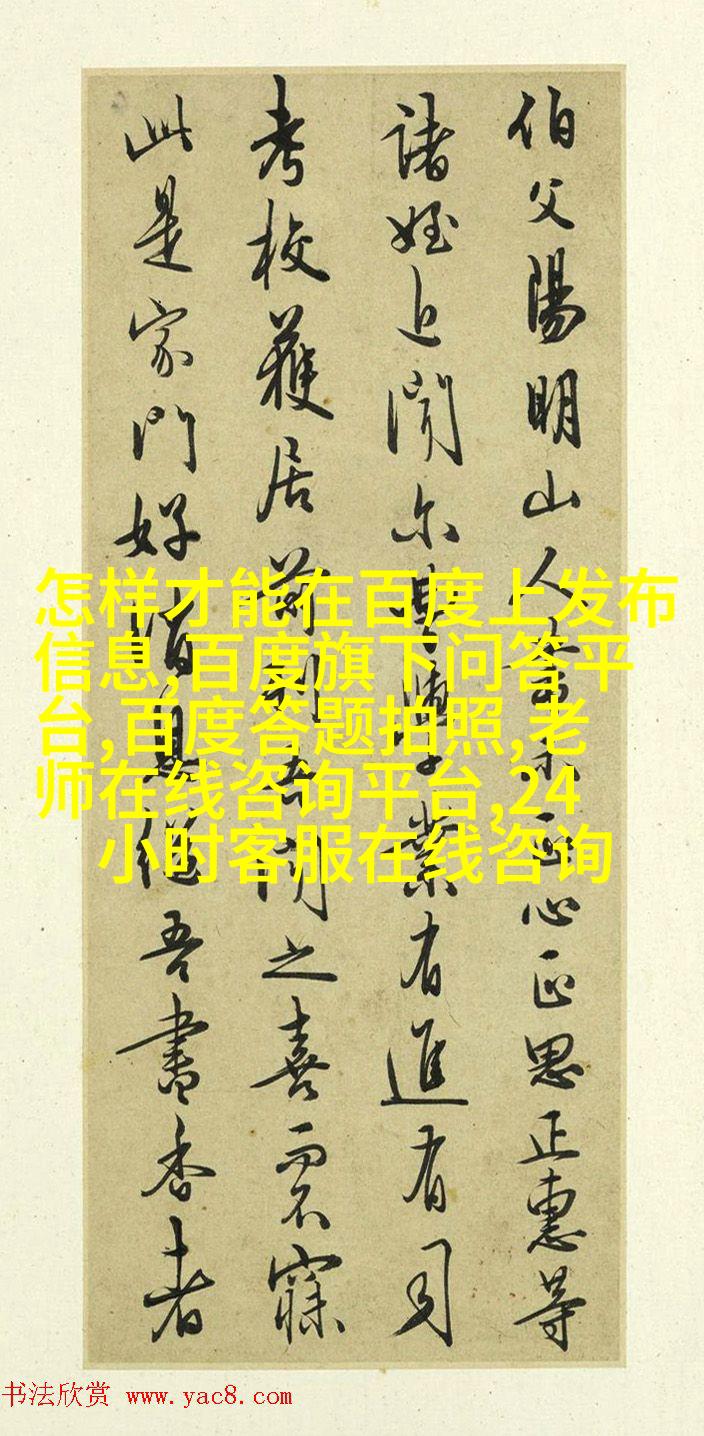 伯父陽明山人示正心正思正惠等
諸姪近聞尔曹學業有進有司
考校獲居前列吾聞之喜而不寐
此是家門好消息繼吾書香者
怎样才能在百度上发布
信息,百度旗下问答平
台,百度答题拍照,老
师在线咨询平台,24
小时客服在线咨询
书法欣赏 www.yac8.com